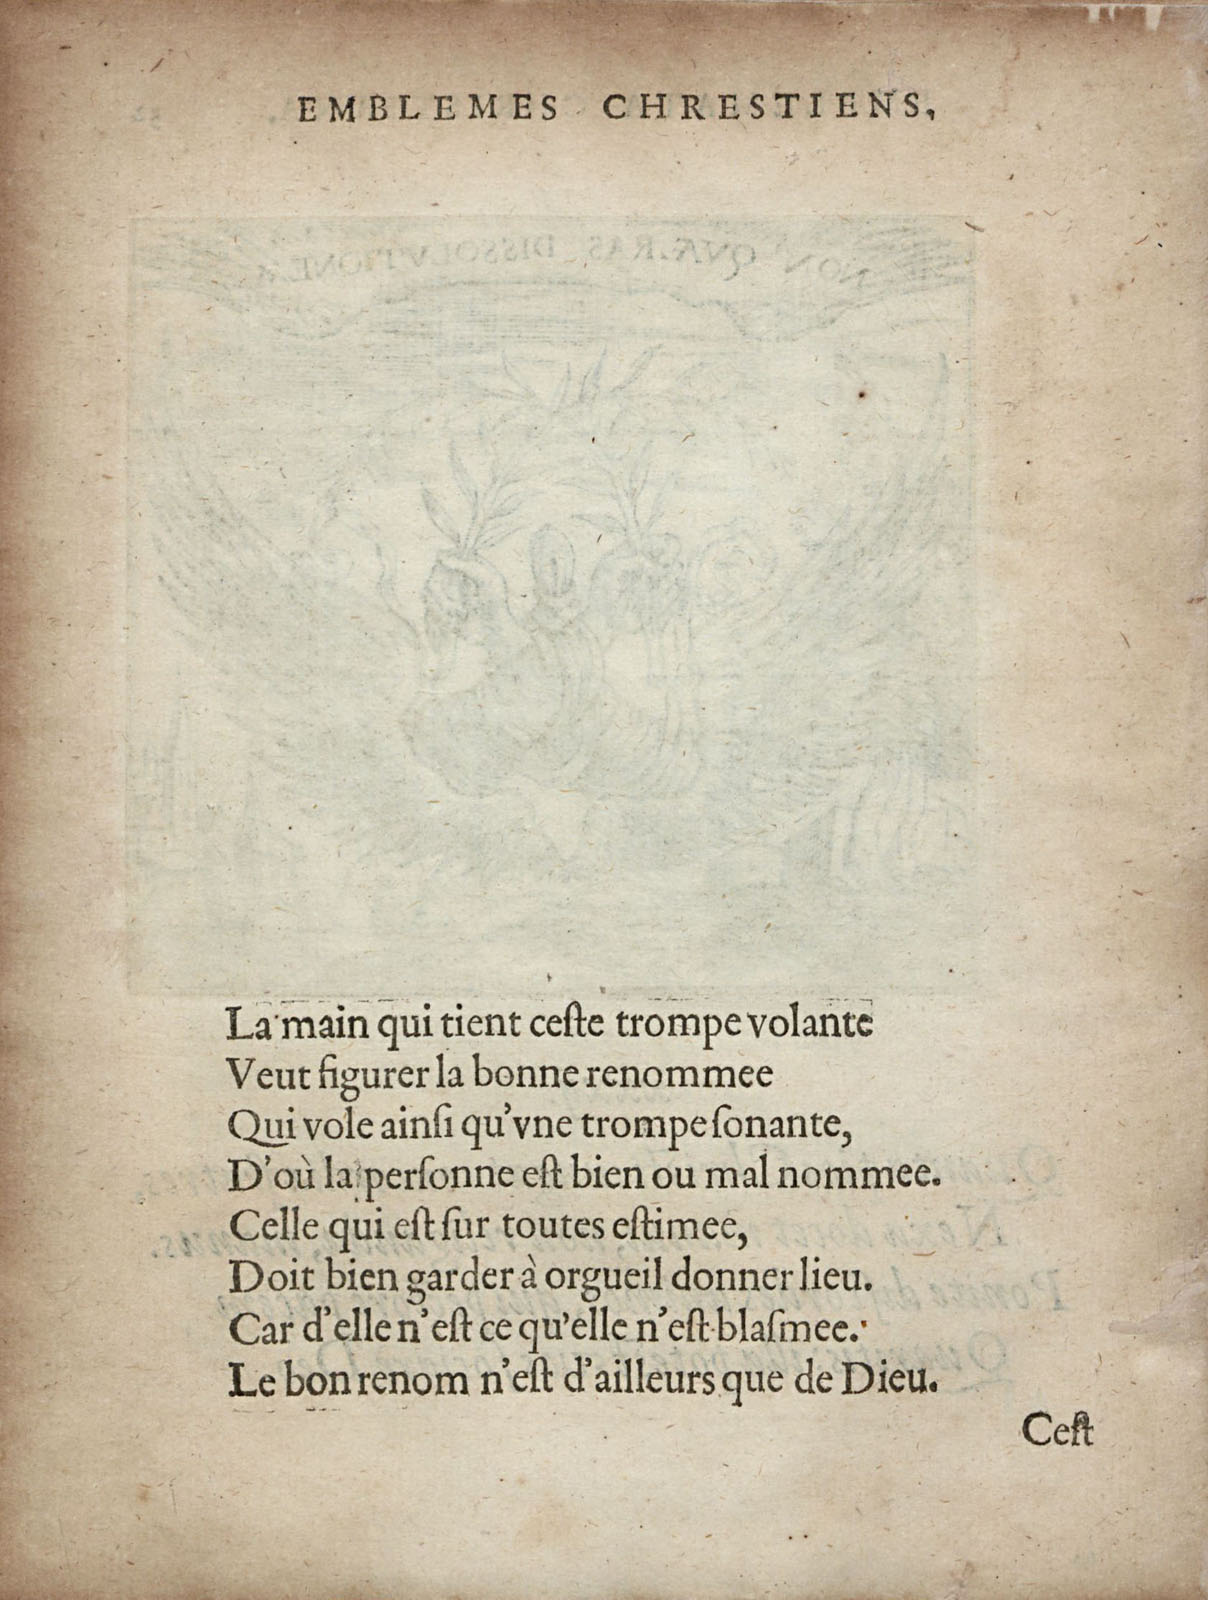 EMBLEMES CHRESTIENS,
NON QVÆRAS DISSOLVTIONEM
La main qui tient ceſte trompe volante
Veut figurer la bonne renommee
Qui vole ainſi qu'vne trompe ſonante,
D'où la perſonne eſt bien ou mal nommee.
Celle qui eſt ſur toutes eſtimee,
Doit bien garder à orgueil donner lieu.
Car d'elle n'eſt ce qu'elle n'eſt blaſmee.
Le bon renom n'eſt d'ailleurs que de Dieu.
Ceſt